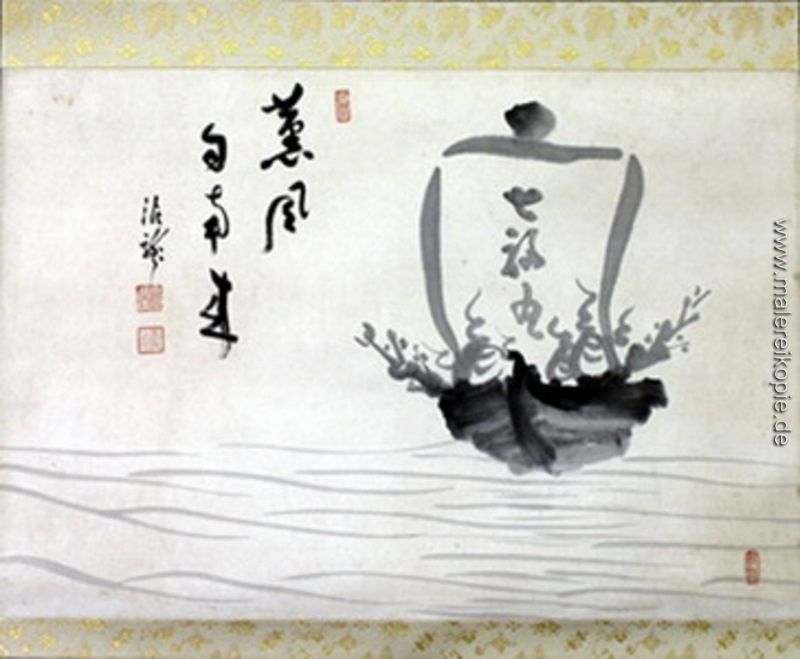 薫風
自南来
七福丸
www.malereikopie.de